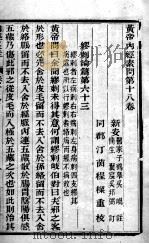 黃帝內經素問第十八卷
新安
同郡
繆刺論篇第六十三
繆刺者左病刺右右病刺左身病刺四支繆其
黃帝問曰余聞繆刺未得其意何謂繆刺岐伯對曰夫邪之客
於形也必先舍於皮毛留而不去入舍於孫脈留而不去入舍
於絡脈留而不去入舍於經脈內連五藏散於腸胃陰陽俱感
五藏乃傷此邪之從皮毛而入極於五藏之次也如此則治其